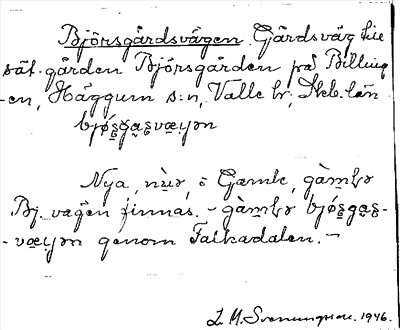 Björsgårdsvägen. Gårdsväg tie
sät. gården Björsgården på Billing
-en, Häggum s:n, Valle hr, Skb. län
bjǿs̬ga̬s̬væɪ̯ən
Nya, nu̇̀ə, o Gamle, gàm̥lə
Bj. vägen finnas. - gàm̥lə bjǿs̬ga̬s̬-
-væɪ̯ən genom Falkadalen. -
L. M. Svenungsson. 1946.